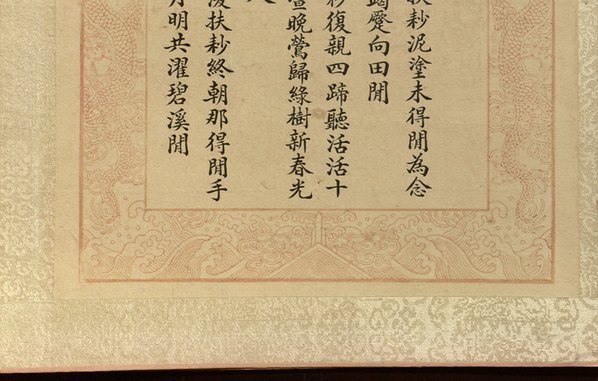 扶耖泥塗未得閒為念
蹷向田閒
耖復親四蹄聽活活十
晚鶯歸綠樹新春光
扶耖終朝那得閒手
月明共濯碧溪閒